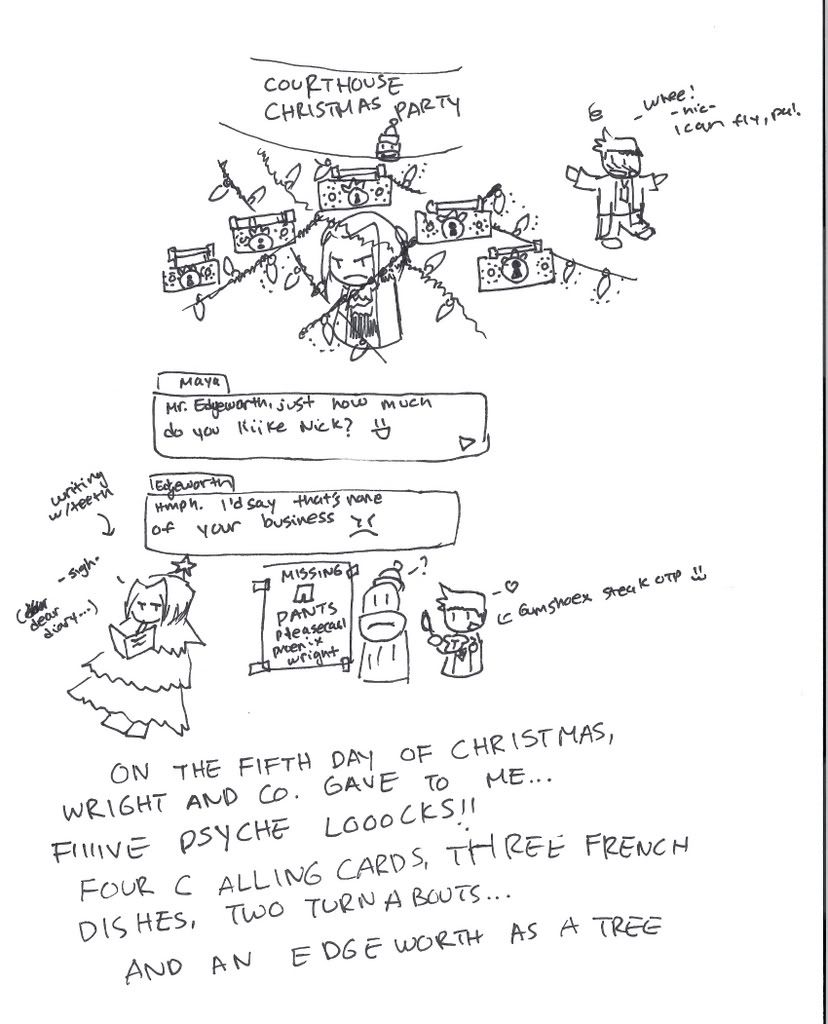 COURTHOUSE
CHRISTMAS PARTY
- whee!
- hic -
I can fly, pal.
Maya
Mr. Edgeworth, just how much
do you liiike Nick?
Edgeworth
Hmph. I'd say that's none
of your business
writing
w/teeth
- sigh -
dear
diary...)
MISSING
PANTS
please call
phoenix
wright
- ?
- ♡
← Gumshoex steak OTP
ON THE FIFTH DAY OF CHRISTMAS,
WRIGHT AND CO. GAVE TO ME...
FIIIIVE PSYCHE LOOOCKS!!
FOUR CALLING CARDS, THREE FRENCH
DISHES, TWO TURNABOUTS...
AND AN EDGEWORTH AS A TREE